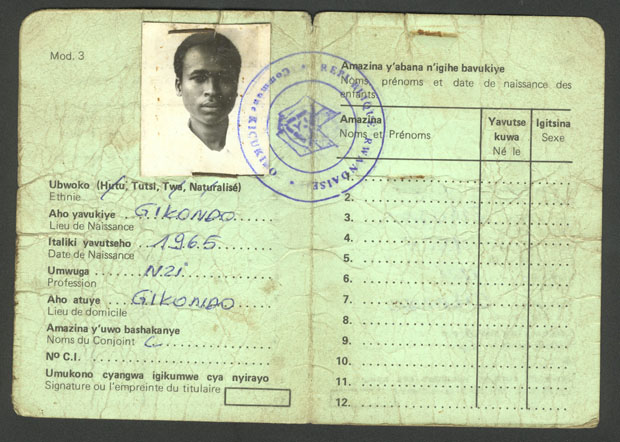 Mod. 3
REPUBLIQUE RWANDAISE
Commune KICUKIRO
Ubwoko (Hutu, Tutsi, Twa, Naturalisé)
Ethnie
Aho yavukiye GIKONDO
Lieu de Naissance
Italiki yavutseho 1965
Date de Naissance
Umwuga NZi
Profession
Aho atuye GIKONDO
Lieu de domicile
Amazina y'uwo bashakanye
Noms du Conjoint C
No C.I.
Umukono cyangwa igikumwe cya nyirayo
Signature ou l'empreinte du titulaire
Amazina y'abana n'igihe bavukiye
Noms, prénoms et date de naissance des
enfants
Amazina Yavutse Igitsina
Noms et Prénoms kuwa Sexe
Né le
1.
2.
3.
4.
5.
6.
7.
8.
9.
10.
11.
12.